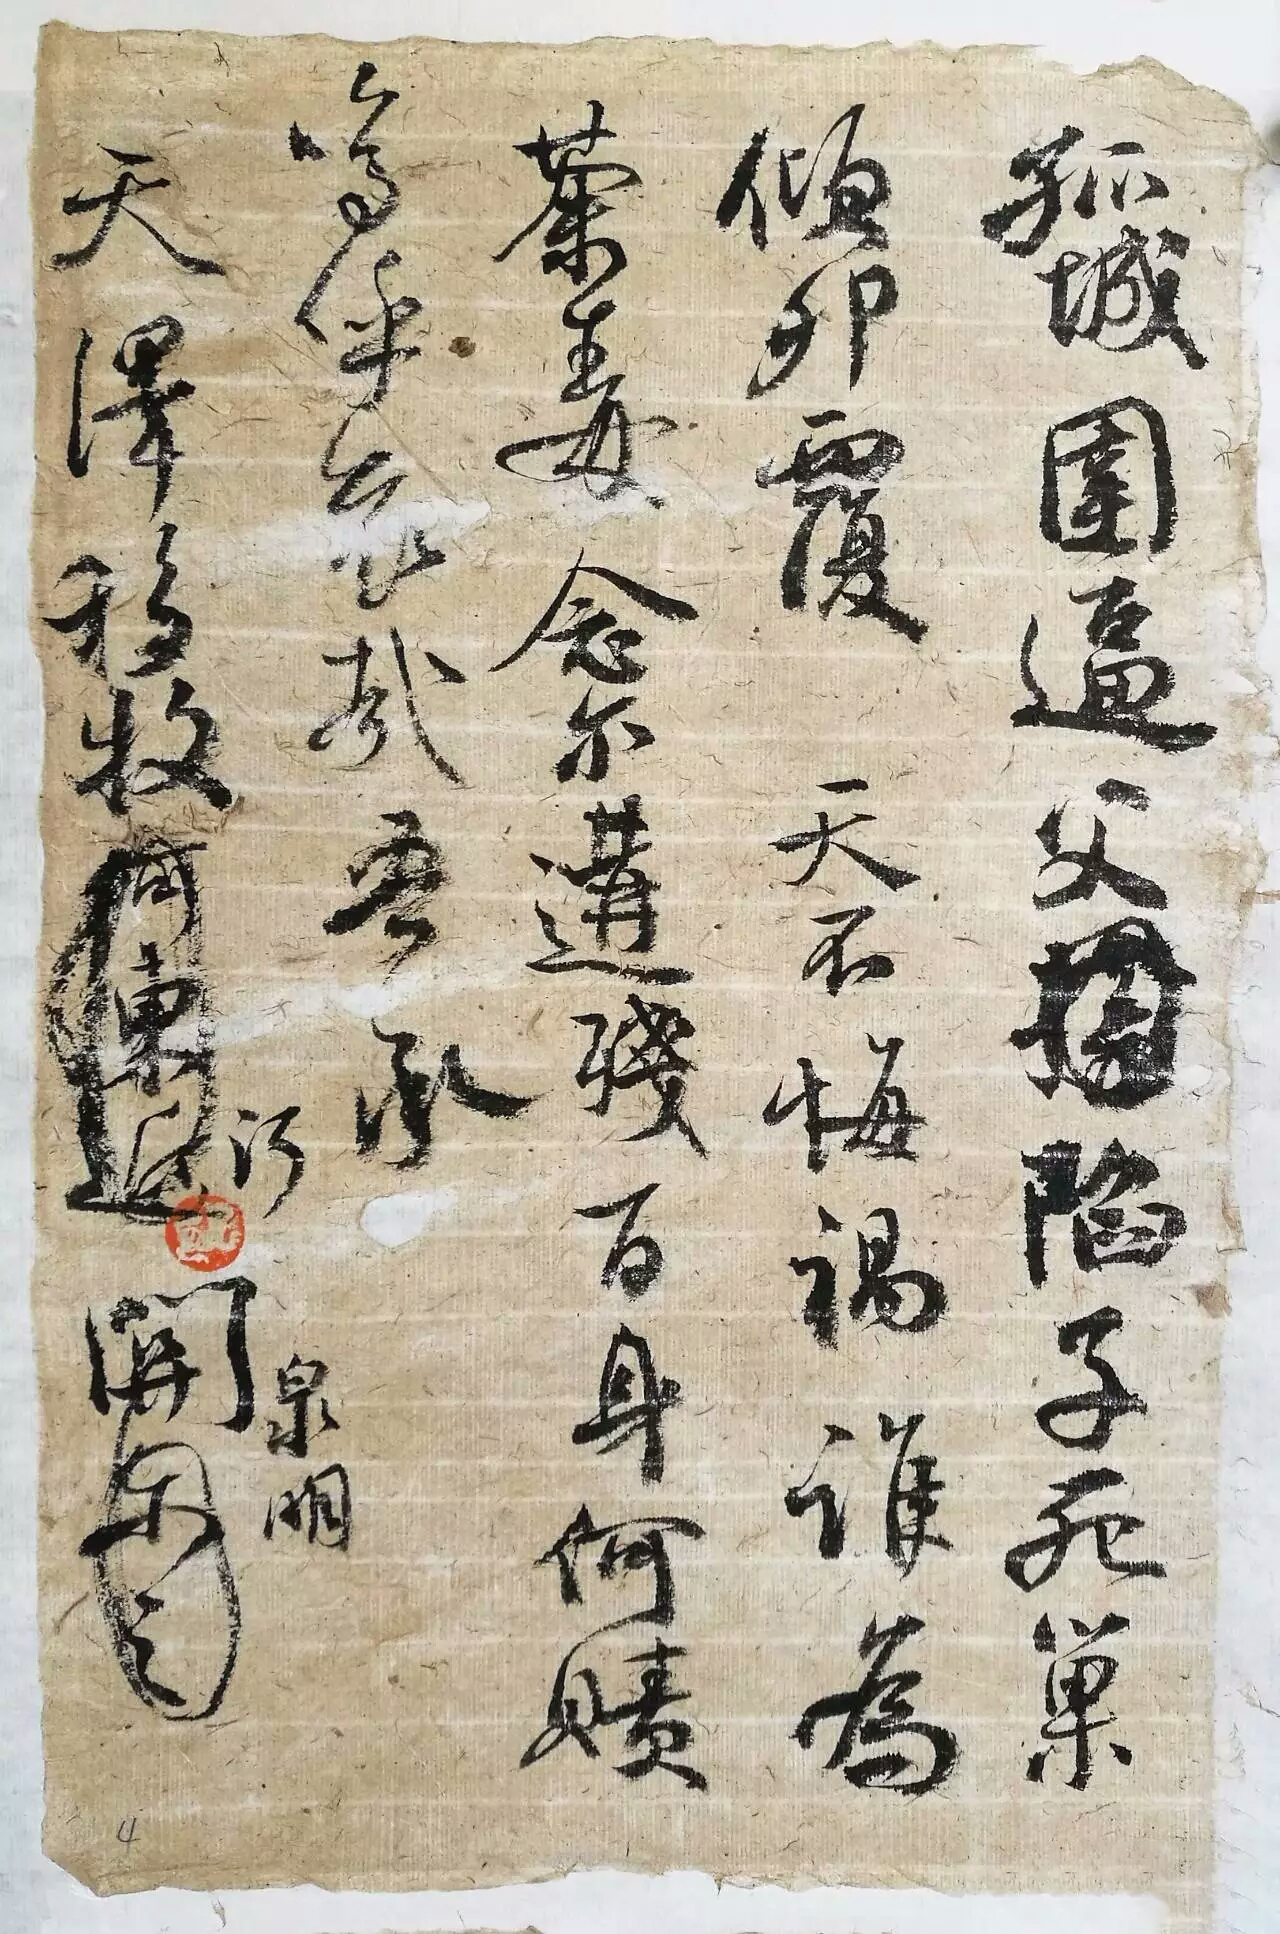 孤城圍逼父擒陷子死巢
傾卵覆天不悔禍誰為
荼毒念尔遘殘百身何贖
嗚呼哀哉吾承
天澤移牧河東近
河
開尔之
泉明
4